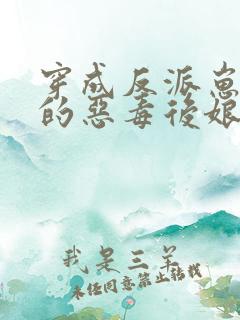 穿成反派崽
的惡毒後娘
我是三羊
未经同意禁止转载